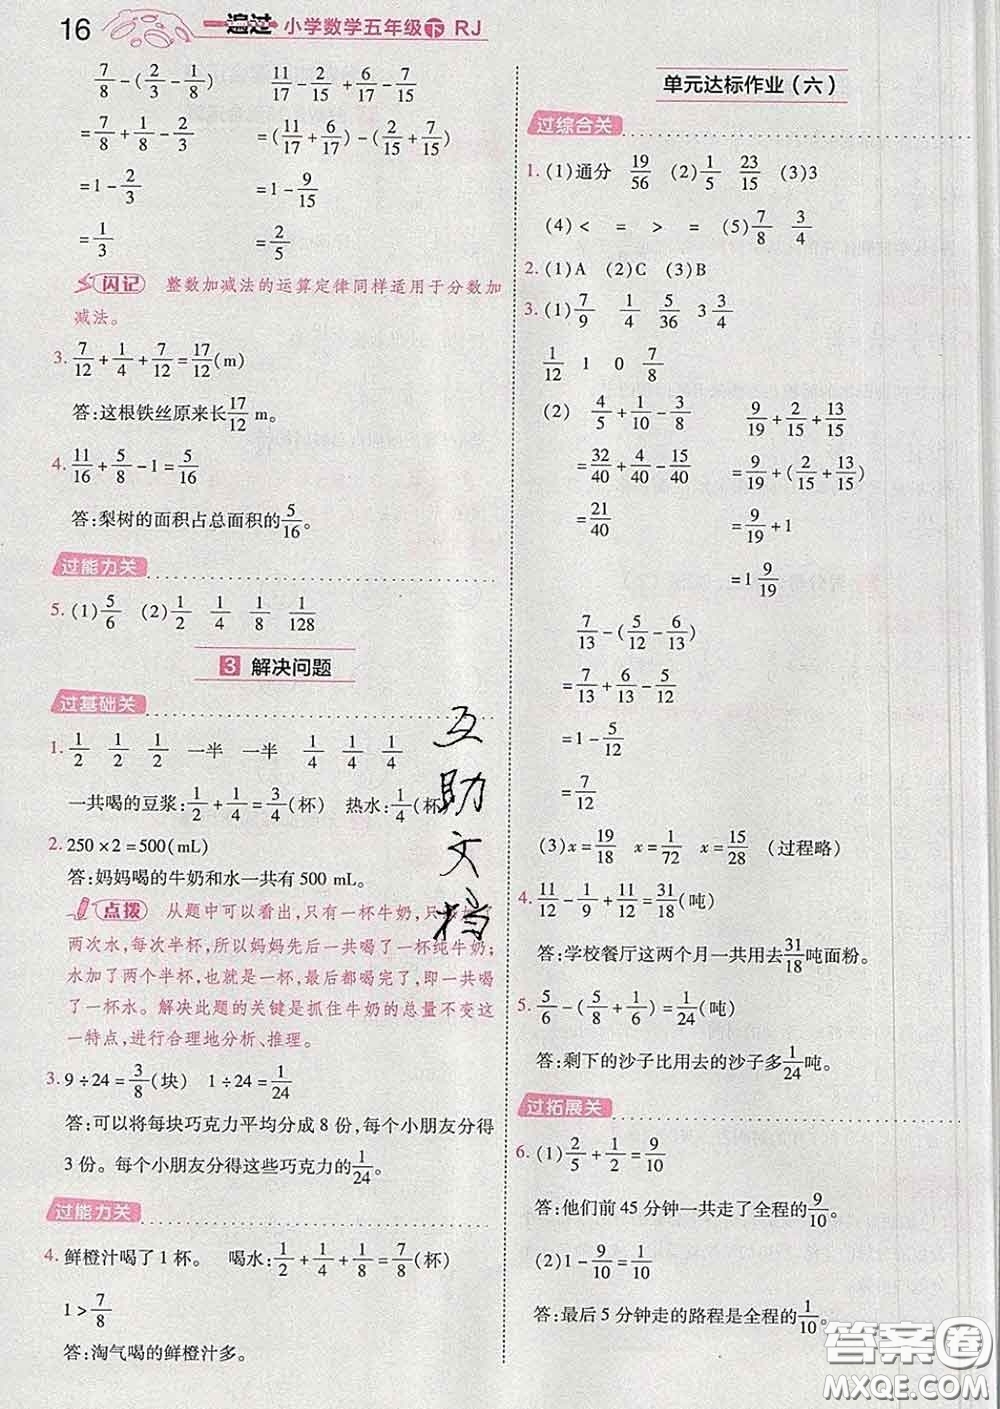 16 一遍过 小学数学五年级 下 RJ
7/8-(2/3-1/8) 11/17-2/15+6/17-7/15
=7/8+1/8-2/3 =(11/17+6/17)-(2/15+7/15)
=1-2/3 =1-9/15
=1/3 =2/5
闪记 整数加减法的运算定律同样适用于分数加
减法。
3. 7/12+1/4+7/12=17/12(m)
答:这根铁丝原来长17/12 m。
4. 11/16+5/8-1=5/16
答:梨树的面积占总面积的5/16。
过能力关
5. (1)5/6 (2)1/2 1/4 1/8 1/128
3 解决问题
过基础关
1. 1/2 1/2 1/2 一半 一半 1/4 1/4 1/4
一共喝的豆浆:1/2+1/4=3/4(杯) 热水:1/4(杯)
2. 250×2=500(mL)
答:妈妈喝的牛奶和水一共有 500 mL。
点拨 从题中可以看出,只有一杯牛奶,只
两次水,每次半杯,所以妈妈先后一共喝了一杯纯牛奶;
水加了两个半杯,也就是一杯,最后都喝完了,即一共喝
了一杯水。解决此题的关键是抓住牛奶的总量不变这
一特点,进行合理地分析、推理。
3. 9÷24=3/8(块) 1÷24=1/24
答:可以将每块巧克力平均分成 8 份,每个小朋友分得
3 份。每个小朋友分得这些巧克力的1/24。
过能力关
4. 鲜橙汁喝了 1 杯。 喝水:1/2+1/4+1/8=7/8(杯)
1>7/8
答:淘气喝的鲜橙汁多。
单元达标作业(六)
过综合关
1. (1)通分 19/56 (2)1/5 23/15 (3)3
(4)< = > = (5)7/8 3/4
2. (1)A (2)C (3)B
3. (1)7/9 1/4 5/36 3 3/4
1/12 1 0 7/8
(2) 4/5+1/10-3/8 9/19+2/15+13/15
=32/40+4/40-15/40 =9/19+(2/15+13/15)
=21/40 =9/19+1
=1 9/19
7/13-(5/12-6/13)
=7/13+6/13-5/12
=1-5/12
=7/12
(3)x=19/18 x=1/72 x=15/28 (过程略)
4. 11/12-1/9+11/12=31/18(吨)
答:学校餐厅这两个月一共用去31/18吨面粉。
5. 5/6-(5/8+1/6)=1/24(吨)
答:剩下的沙子比用去的沙子多1/24吨。
过拓展关
6. (1)2/5+1/2=9/10
答:他们前 45 分钟一共走了全程的9/10。
(2)1-9/10=1/10
答:最后 5 分钟走的路程是全程的1/10。
互助文档
答案圈
MXQE.COM